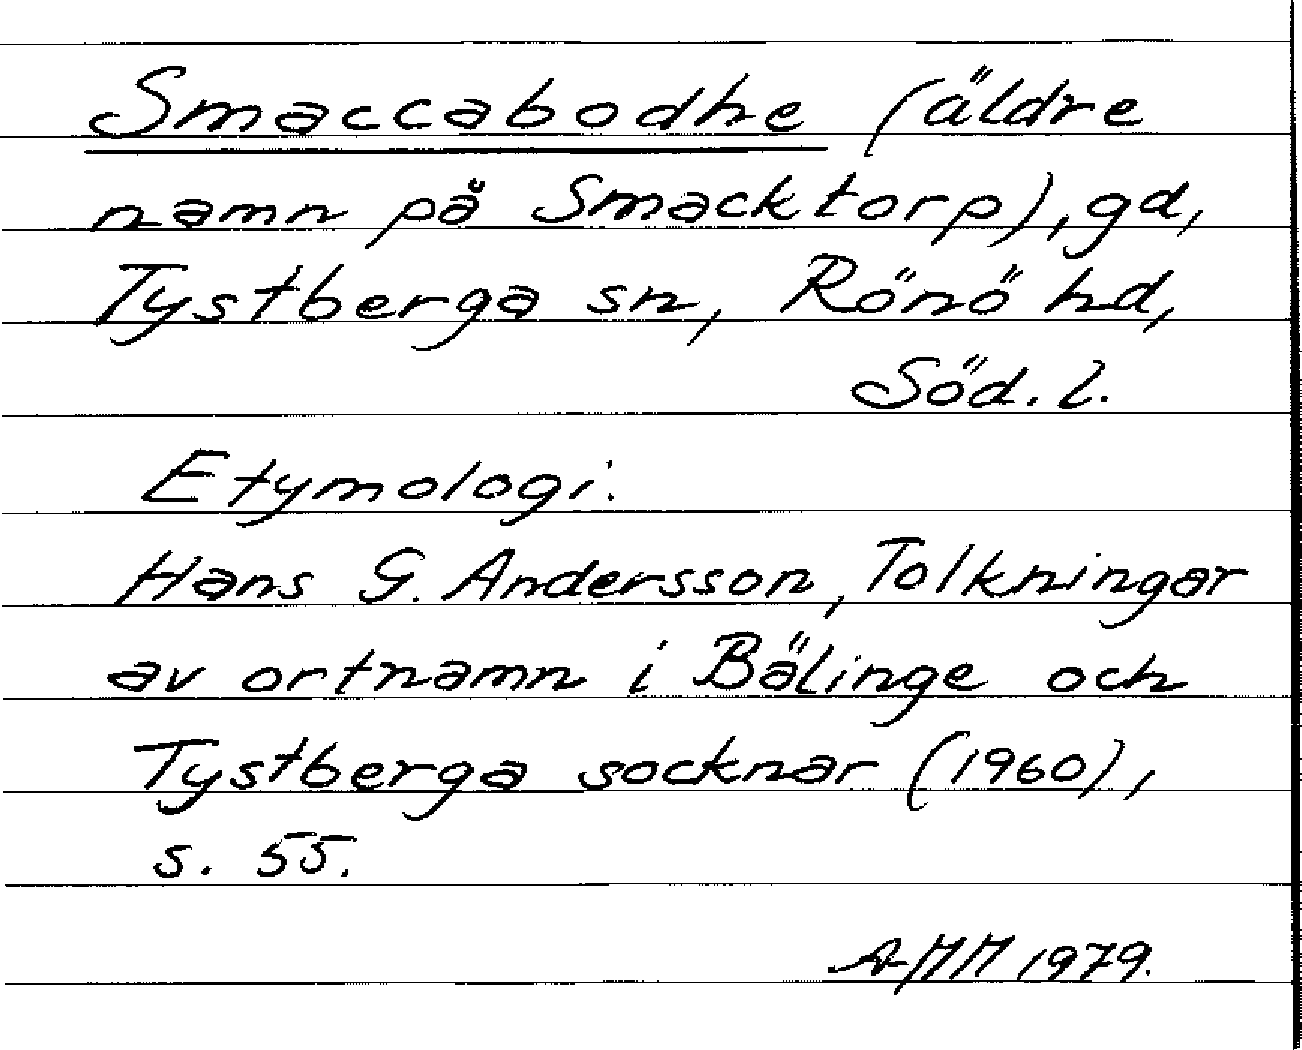 Smaccabodhe (äldre
namn på Smacktorp), gd,
Tystberga sn, Rönö hd,
Söd. l.
Etymologi:
Hans G. Andersson, Tolkningar
av ortnamn i Bälinge och
Tystberga socknar (1960),
s. 55.
AMM 1979.